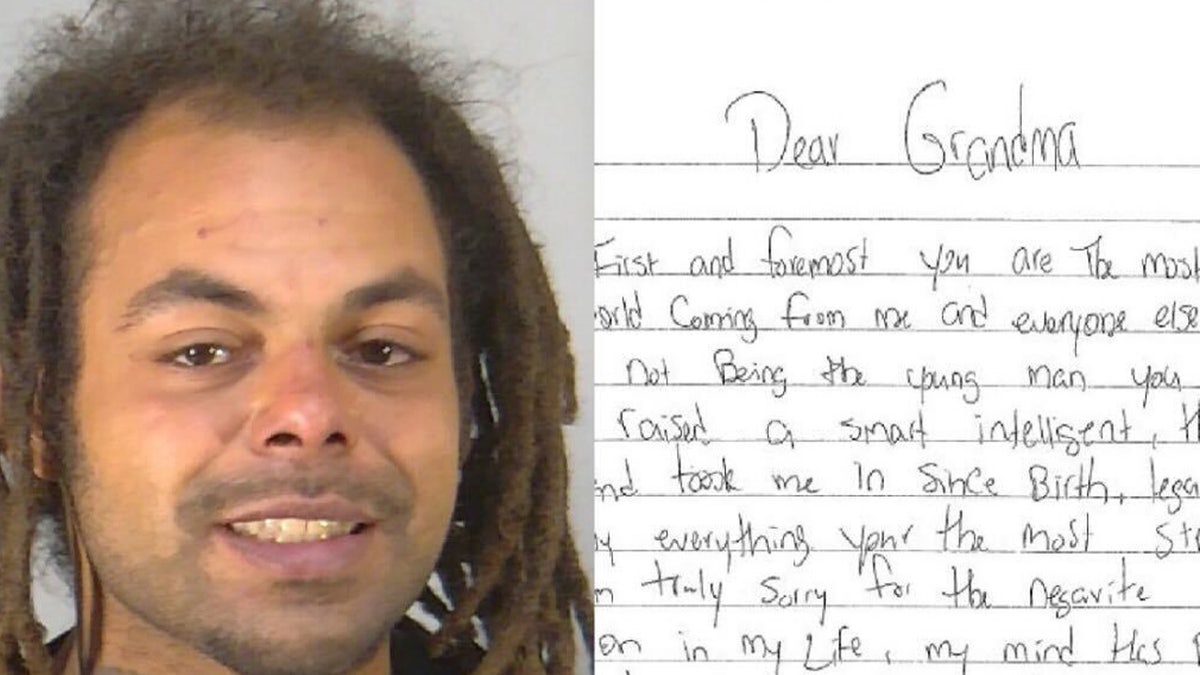 Dear Grandma
First and foremost you are The most
orld Coming from me and everyone else
not Being the young man you
raised a smart intelligent, th
nd toook me in Since Birth, lega
y everything your the most st
m truly sorry for the negavite
on in my Life, my mind Has